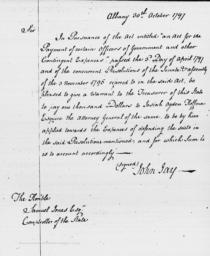 Albany 30th October 1797
Sir
In Pursuance of the Act entitled "an Act for the
Payment of certain Officers of Government and other
Contingent Expences" passed the 3d Day of April 1797
and of the concurrent Resolutions of the Senate & Assembly
of the 3 November 1796 referred to in the said Act, be
pleased to give a Warrant to the Treasurer of this State
to pay one thousand Dollars to Josiah Ogden Hoffman
Esquire the Attorney General of the same to be by him
applied towards the Expence of defending the suits in
the said Resolutions mentioned; and for which Sum he
is to account accordingly
signed
John Jay
The Honble
Samuel Jones Esqr
Comptroller of the State